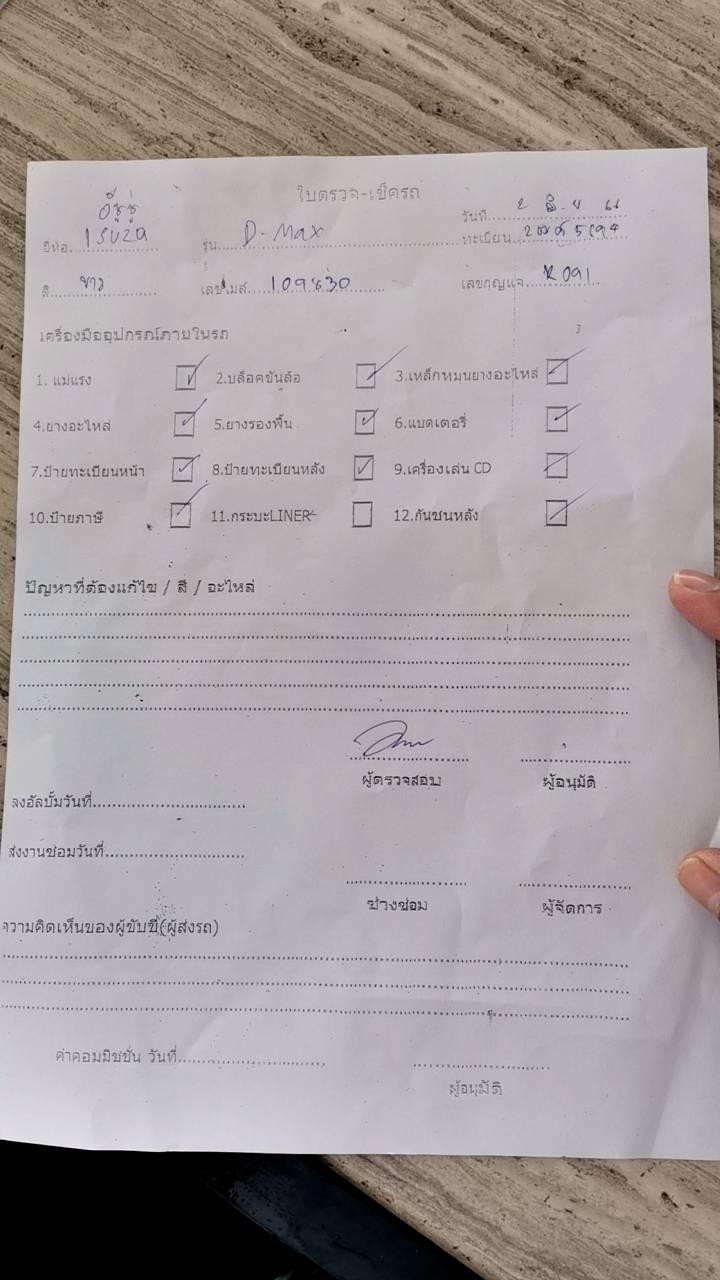 ใบตรวจ-เช็ครถ
อีซูซุ
วันที่ 2 มิ.ย 66
ยี่ห้อ ISUZU รุ่น D-Max ทะเบียน
สี ขาว เลขไมล์ 109830 เลขกุญแจ R091
เครื่องมืออุปกรณ์ภายในรถ
1. แม่แรง 2.บล็อคขันล้อ 3.เหล็กหมุนยางอะไหล่
4.ยางอะไหล่ 5.ยางรองพื้น 6.แบตเตอรี่
7.ป้ายทะเบียนหน้า 8.ป้ายทะเบียนหลัง 9.เครื่องเล่น CD
10.ป้ายภาษี 11.กระบะLINER 12.กันชนหลัง
ปัญหาที่ต้องแก้ไข / สี / อะไหล่
ผู้ตรวจสอบ ผู้อนุมัติ
ลงอัลบั้มวันที่
ส่งงานซ่อมวันที่
ช่างซ่อม ผู้จัดการ
ความคิดเห็นของผู้ขับขี่(ผู้ส่งรถ)
ค่าคอมมิชชั่น วันที่
ผู้อนุมัติ